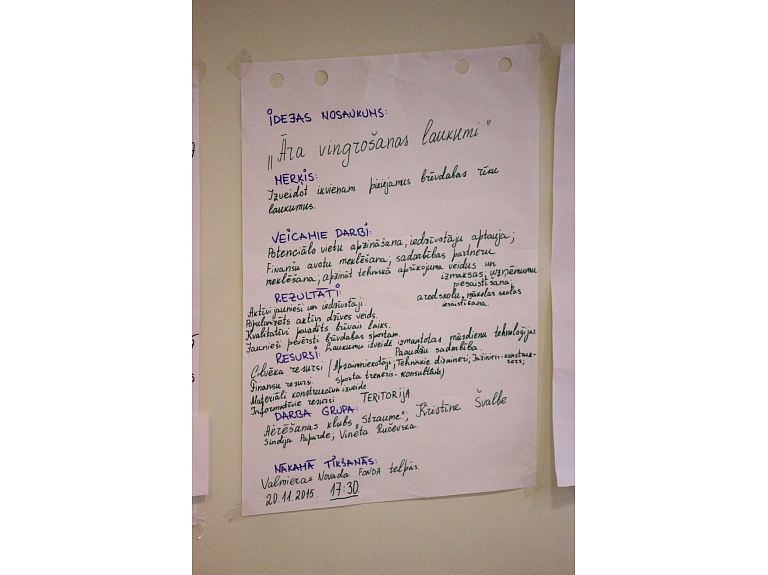 IDEJAS NOSAUKUMS:
„Āra vingrošanas laukumi"
MĒRĶIS:
Izveidot ikvienam pieejamus brīvdabas rīku
laukumus.
VEICAMIE DARBI:
Potenciālo vietu apzināšana, iedzīvotāju aptauja;
Finanšu avotu meklēšana; sadarbības partneru
meklēšana; apzināt tehniskā aprīkojuma veidus un
izmaksas, uzņēmumu
piesaistīšana,
arodskolu, mākslas skolas
iesaistīšana.
REZULTĀTI:
Aktīvi jaunieši un iedzīvotāji.
Popularizēts aktīvs dzīves veids.
Kvalitatīvi pavadīts brīvais laiks.
Jaunieši pievērsti brīvdabas sportam.
Laukumu izveidē izmantotas mūsdienu tehnoloģijas
Paaudžu sadarbība.
RESURSI:
Cilvēka resursi (Apsaimniekotāji; Tehniskie dizaineri; Inženieri-konstruk-
tors;
Finansu resursi. sporta treneris-konsultants)
Materiāli konstrukciju izveide
Informatīvie resursi TERITORIJA.
DARBA GRUPA:
Airēšanas klubs "Straume"; Kristīne Švalbe
Sindija Paparde; Vineta Ručevska.
NĀKAMĀ TIKŠANĀS:
Valmieras Novada FONDA telpās.
20.11.2015. 17:30